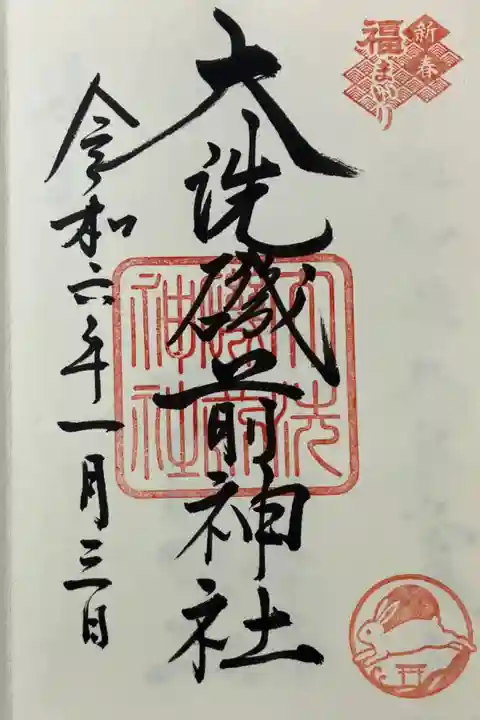 新春
福まいり
大洗磯前神社
大洗磯前神社
令和六年一月三日